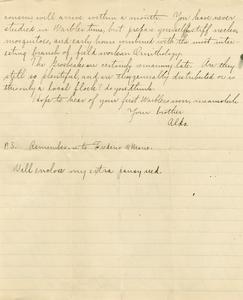 censns will arrive within a month. You have never
studied in Warbler time, but prepare yourself stiff necks,
mosquitoes, and early hours combined with the most inter-
esting branch of field work in Ornithology.
The Grosbeaks are certainly remaining late. Are they
still so plentiful, and are they generally distributed or is
it only a local flock? do you think.
Hope to hear of your first Warbler soon, meanwhile
Your brother
Aldo.
P.S. Remember me to Frederic & Marie.
Will enclose my extra pansy seed